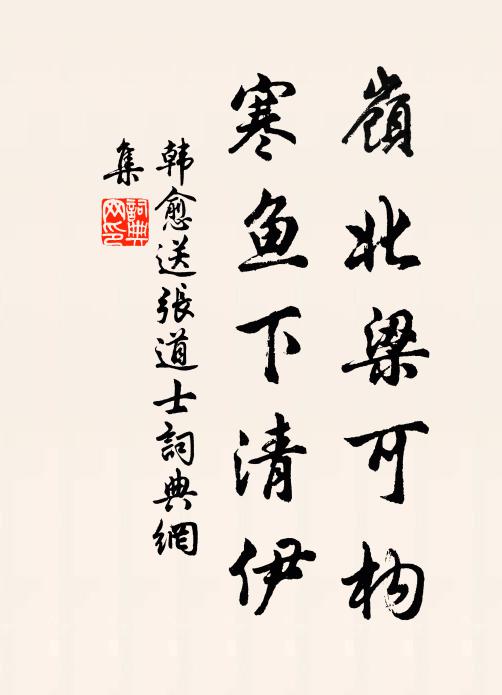 嶺北梁可构
寒鱼下清伊
韩愈送張道士詞典網
集
詞典网印